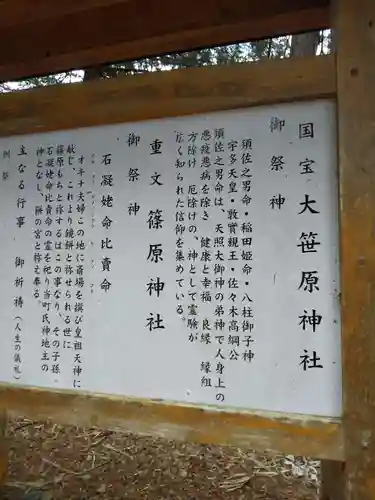 国宝大笹原神社
御祭神
須佐之男命・稲田姫命・八柱御子神
宇多天皇・敦實親王・佐々木高綱公
須佐之男命は、天照大御神の弟神で人身上の
悪疫悪病を除き、健康と幸福、良縁、縁組
方除け、厄除けの、神として霊験が
広く知られた信仰を集めている。
重文 篠原神社
御祭神
石凝姥命比賣命
オキナ夫婦この地に斎場を撰び皇祖天神に
献じ、これより鏡餅と称せられる世に
篠原もちと称するはこの事なり、その子孫
石凝姥命比賣命の霊を祀り当町氏神地主の
神となし、餅の宮と称え奉る。
主なる行事 御祈祷(人生の儀礼)
例祭